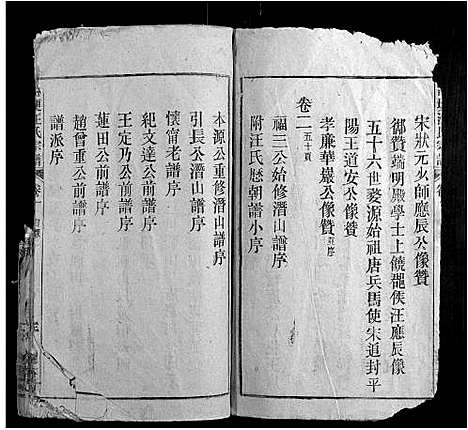 宋狀元少師應辰公像贊
御贊端明殿學士上饒郡侯汪應辰像
五十六世婺源始祖唐兵馬使宋追封平
陽王道安公像贊
孝廉華巖公像贊
卷二五十頁
福三公始修潛山譜序
附汪氏歷朝譜小序
本源公重修潛山譜序
引長公潛山譜序
懷甯老譜序
紀文達公前譜序
王定乃公前譜序
蓮田公前譜序
趙曾重公前譜序
譜派序